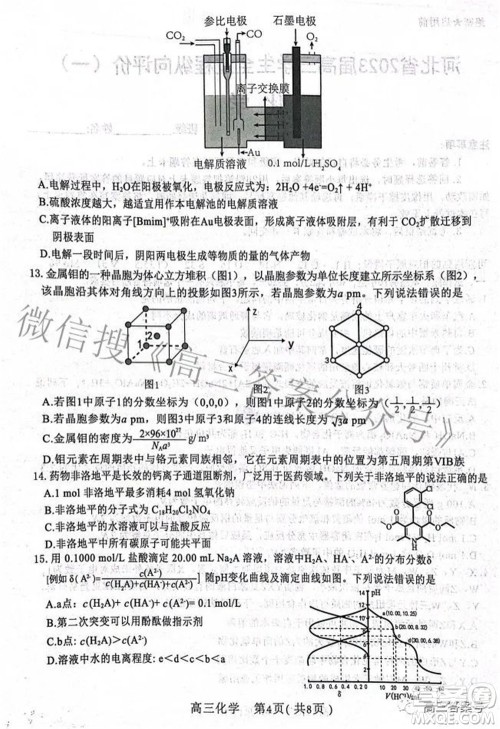 参比电极 石墨电极
CO₂ CO₂ O₂
离子交换膜
Au
电解质溶液 0.1 mol/L H₂SO₄
A.电解过程中，H₂O在阳极被氧化，电极反应为：2H₂O +4e⁻=O₂↑ + 4H⁺
B.硫酸浓度越大，越适合作该电池的电解质溶液
C.离子液体的阳离子[Bmim]⁺吸附在Au电极表面，形成离子液体吸附层，有利于CO₂扩散迁移到
阴极表面
D.电解一段时间后，阴阳两电极生成等物质的量的气体产物
13. 金属钼的一种晶胞为体心立方堆积（图1），以晶胞参数为单位长度建立所示坐标系（图2），
该晶胞沿其体对角线方向上的投影如图3所示，若晶胞参数为a pm。下列说法错误的是
1 2 z x y 3 4
图1 图2 图3
A.若图1中原子1的分数坐标为（0,0,0），则图1中原子2的分数坐标为（1/2,1/2,1/2）
B.若晶胞参数为a pm，则图3中原子3和原子4的连线长度为√3a pm
C.金属钼的密度为 2×96×10²⁷/N_A a³ g/m³
D.钼元素在周期表中与铬元素同族相邻，它在元素周期表中的位置为第五周期第VIB族
14. 药物非洛地平是优秀的钙离子通道阻断剂，广泛用于医药领域。下列关于非洛地平的说法正确的是
A.1 mol 非洛地平最多消耗4 mol 氢氧化钠
B.非洛地平的分子式为 C₁₈H₂₀Cl₂NO₄
C.非洛地平的水溶液可以与盐酸反应
D.非洛地平中所有碳原子可能共平面
15. 用 0.1000 mol/L 盐酸滴定 20.00 mL Na₂A 溶液，溶液中H₂A、HA⁻、A²⁻的分布分数δ
[例如δ(A²⁻)= c(A²⁻)/(c(H₂A)+c(HA⁻)+c(A²⁻))] 随pH变化曲线及滴定曲线如图。下列说法错误的是
A.a点：c(H₂A)+ c(HA⁻)+ c(A²⁻)= 0.1 mol/L
B.第二次突变可以用酚酞做指示剂
C.b点：c(H₂A) > c(A²⁻)
D.溶液中水的电离程度：e<d<c<b<a
pH
1.0 0.8 0.6 0.4 0.2 0
δ V(HCl)/mL
高三化学 第4页（共8页）
微信搜《高三答案公众号》
高三答案号